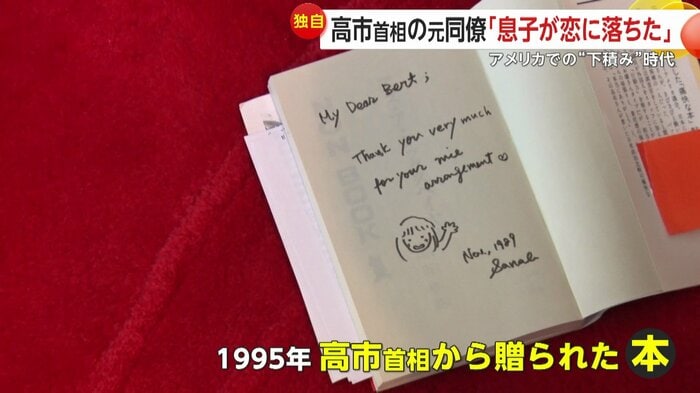 独自
高市首相の元同僚「息子が恋に落ちた」
アメリカでの“下積み”時代
My Dear Bert;
Thank you very much
for your nice
arrangement ♡
Nov, 1989
Sanae
1995年 高市首相から贈られた 本